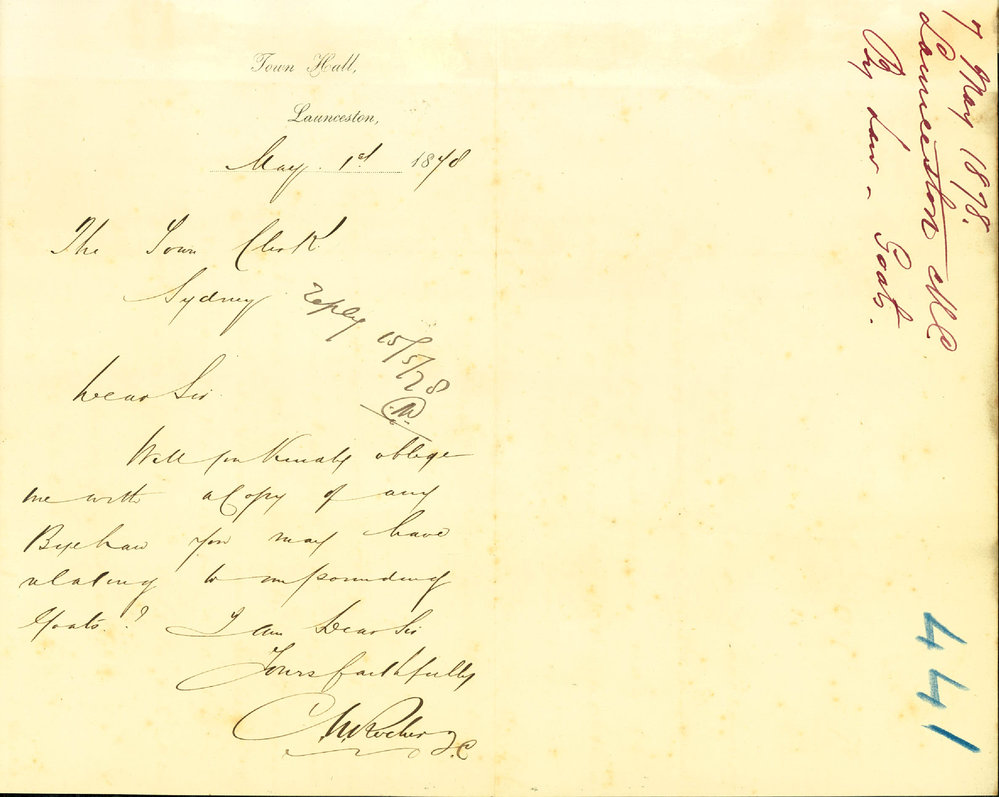 Town Hall,
Launceston,
May 1st 1878
The Town Clerk
Sydney
reply 15/5/78
Dear Sir
Will you Kindly oblige
me with a Copy of any
Bye Law you may have
relating to impounding
Goats?
I am Dear Sir
Yours faithfully
C W Rocher T.C
7 May 1878.
Launceston M.C.
By Law - Goats.
441